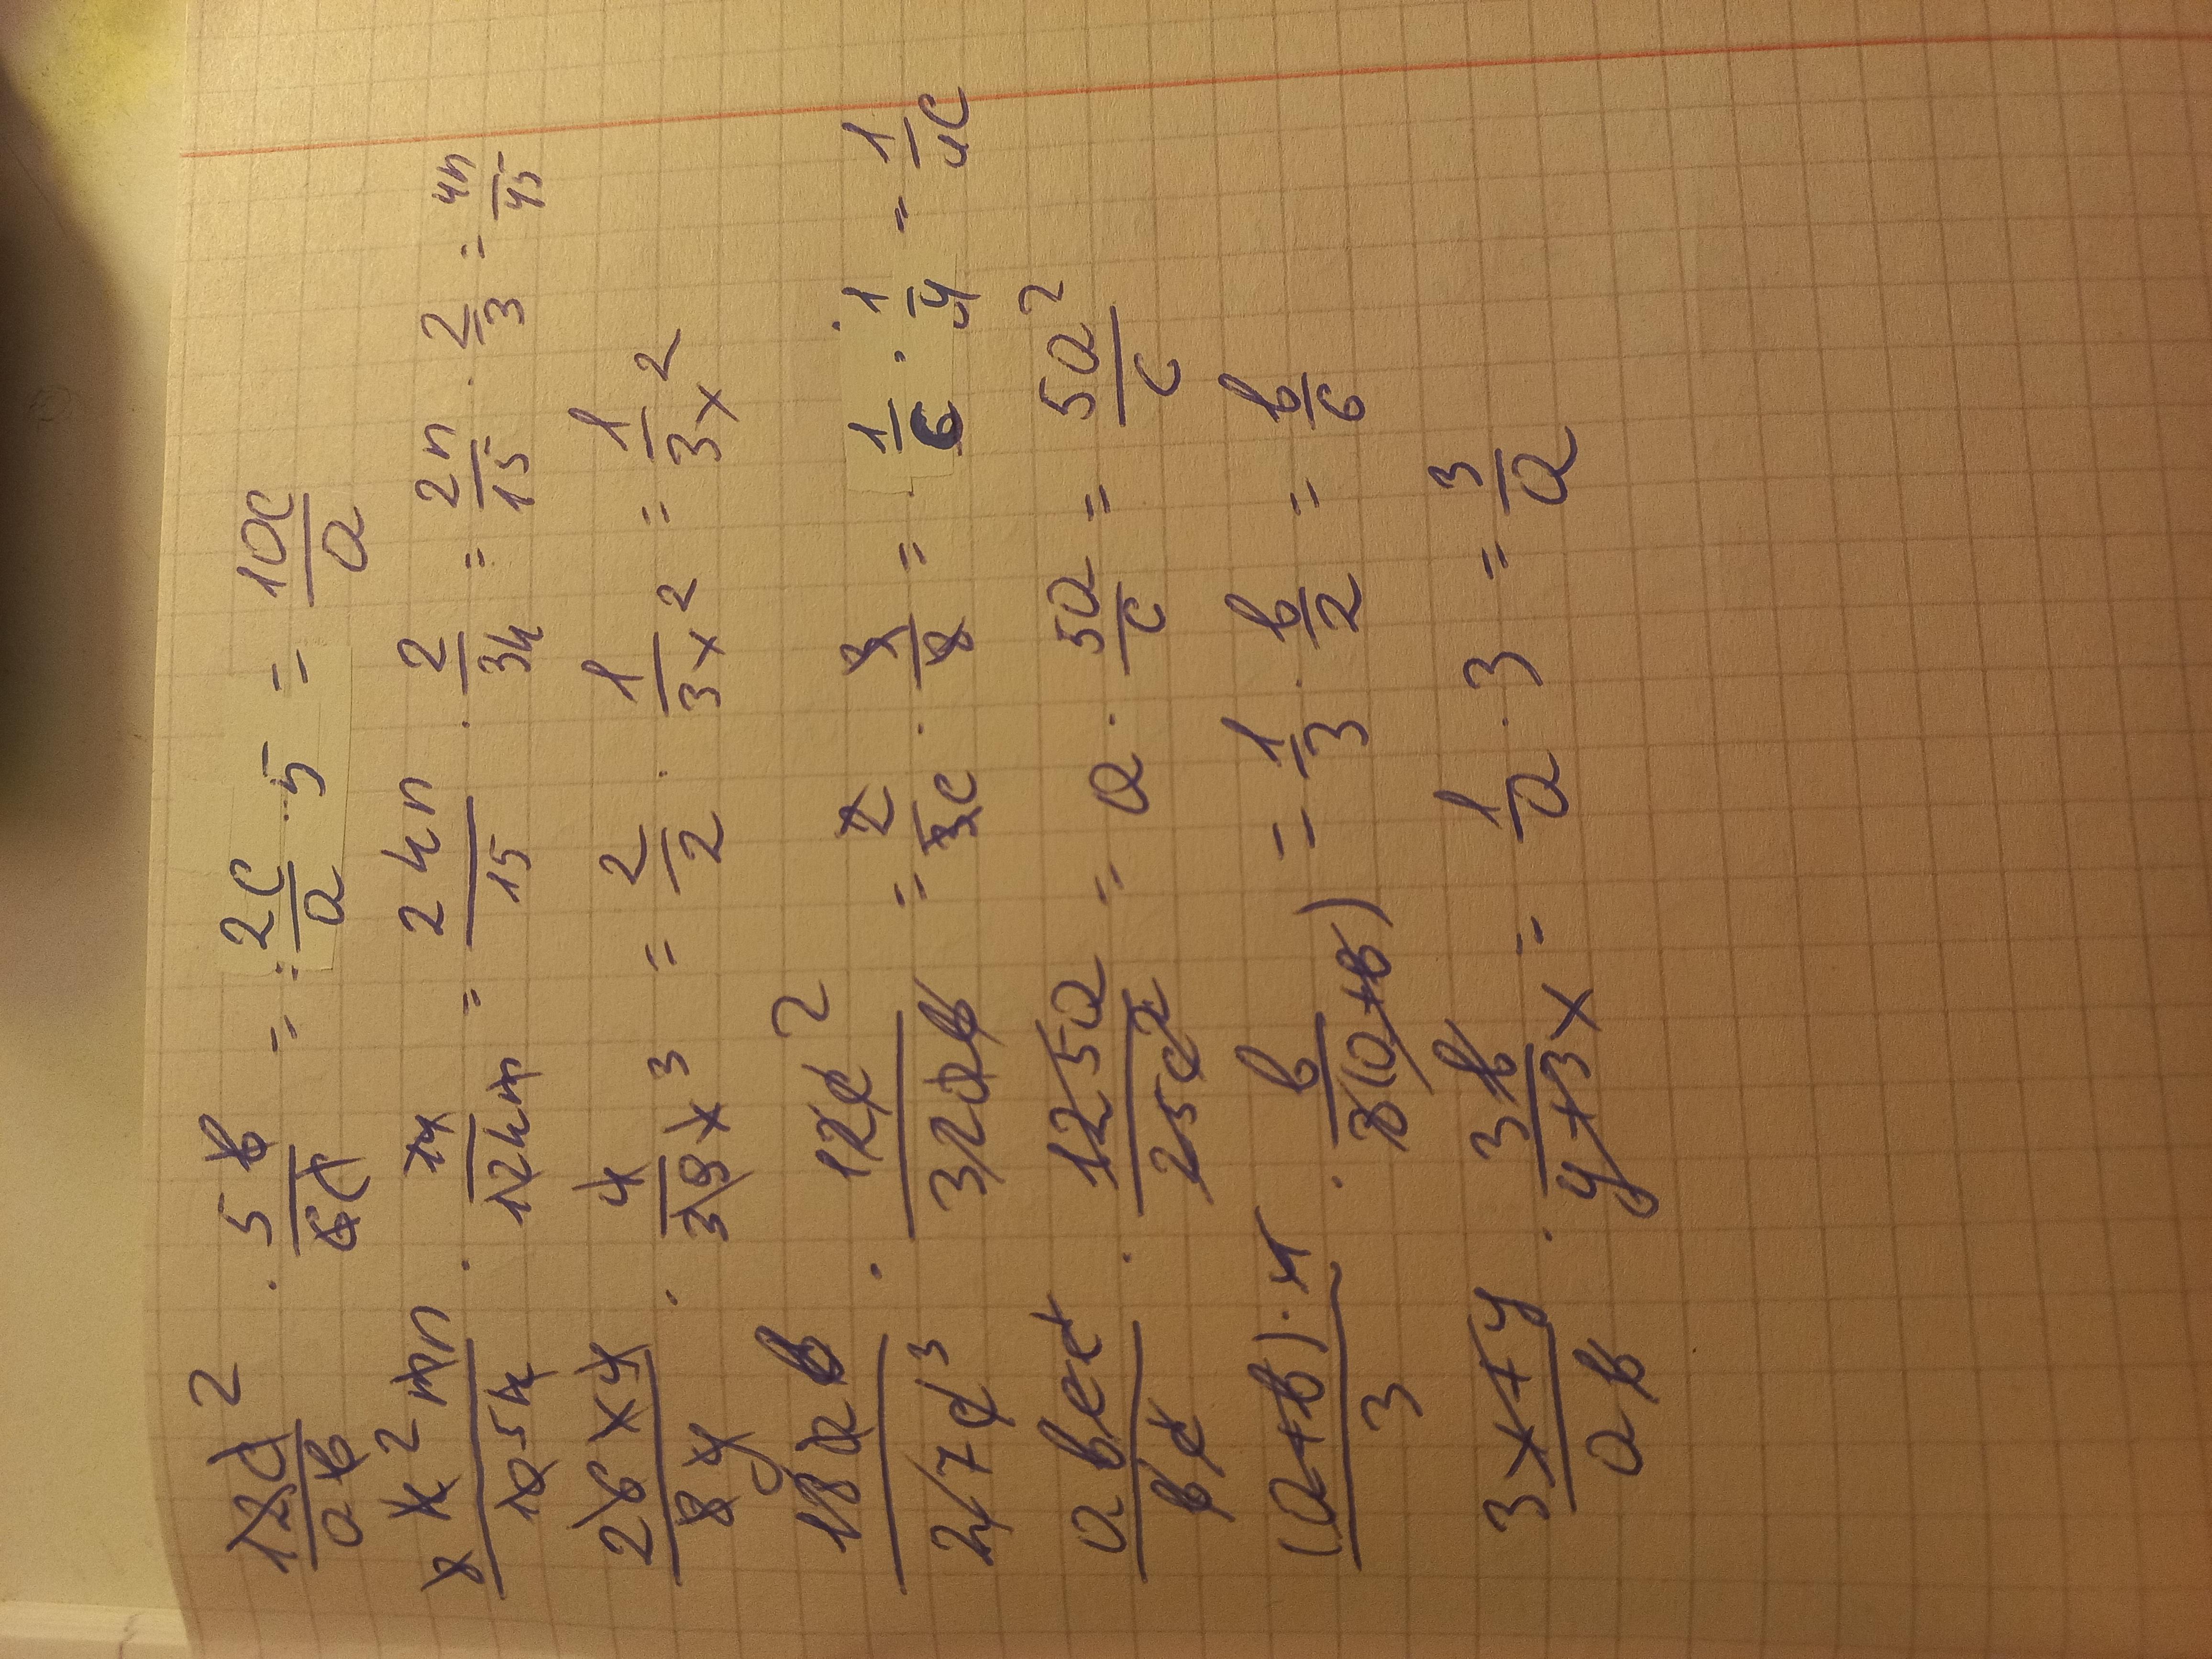 12c²/ab · 5b/6c = = 2c/a · 5 = 10c/a
8k²mn/10 5k · 14/12km = 2kn/15 · 2/3k = 2n/15 · 2/3 = 4n/45
26xy/8y · 4/39x³ = 2/2 · 1/3x² = 1/3x²
18ab/27c³ · 12c²/32ab = 2/3c · 3/8 = 1/c · 1/4 = 1/4c
/bc · 125a/25c² = a · 5a/c = 5a²/c
(a+b)·4/3 · b/8(a+b) = 1/3 · b/2 = b/6
3x+y/ab · 3b/y+3x = 1/a · 3 = 3/a